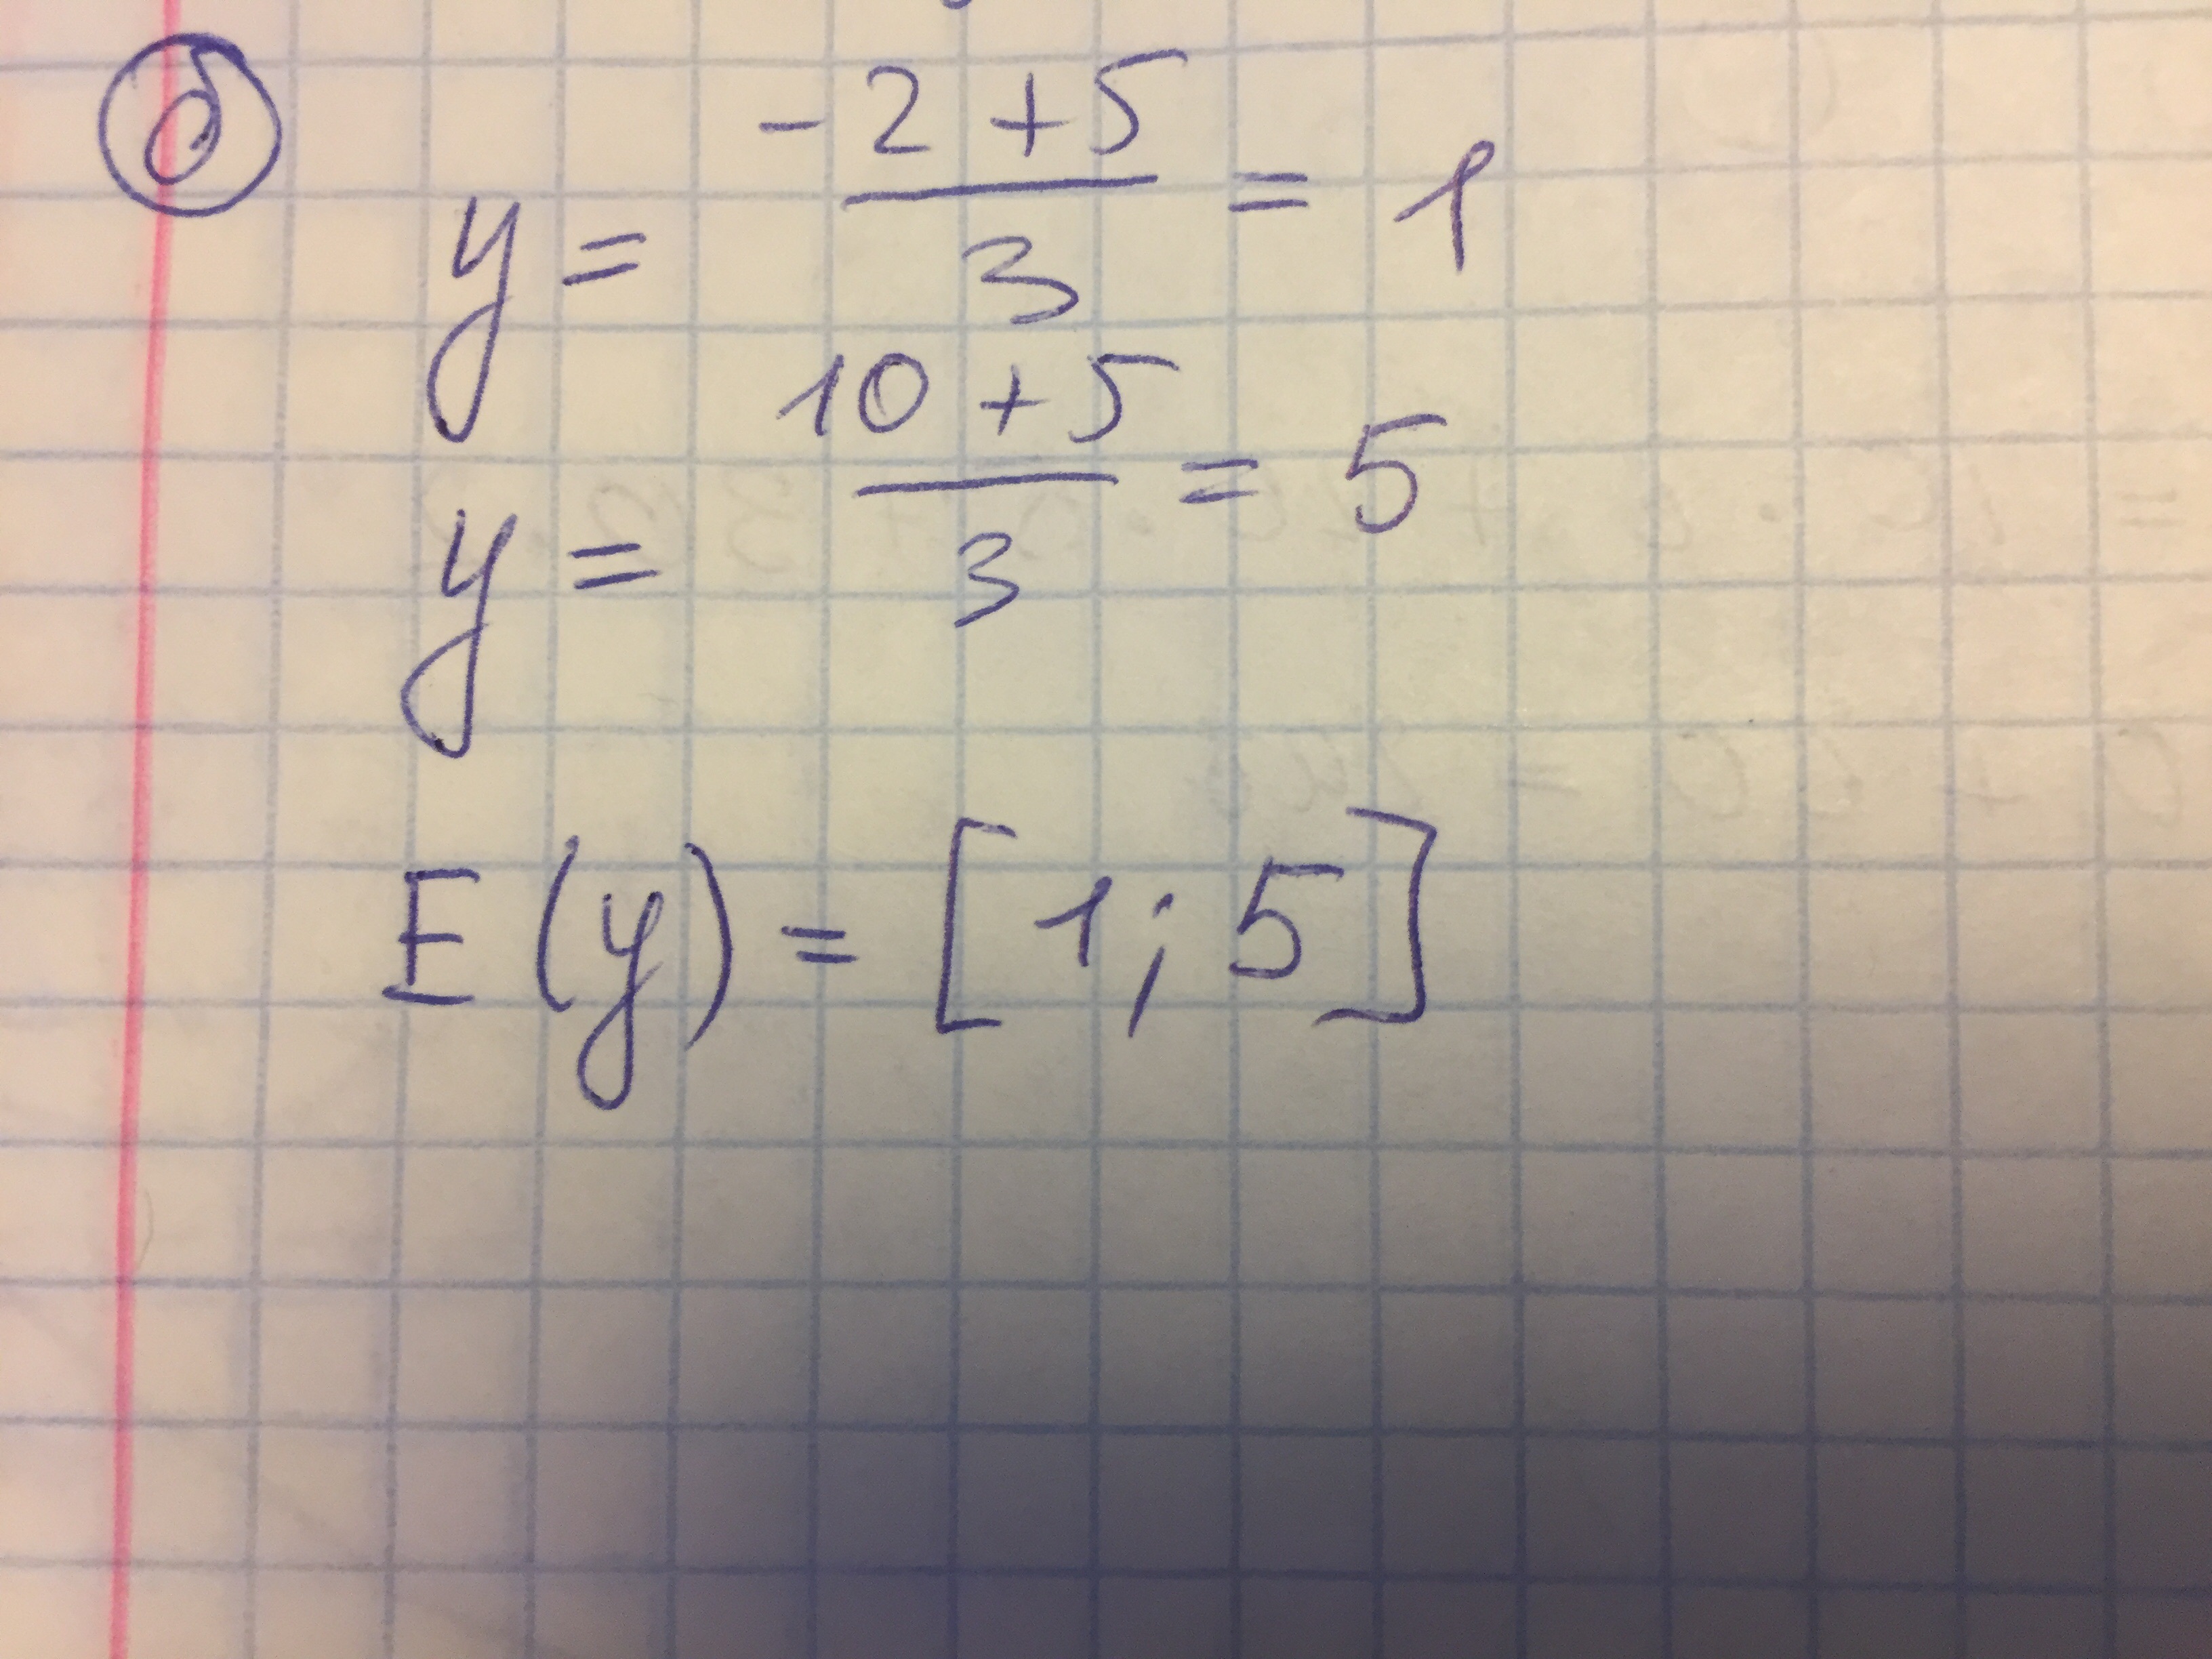 б
y = (-2 + 5)/3 = 1
y = (10 + 5)/3 = 5
E(y) = [1; 5]